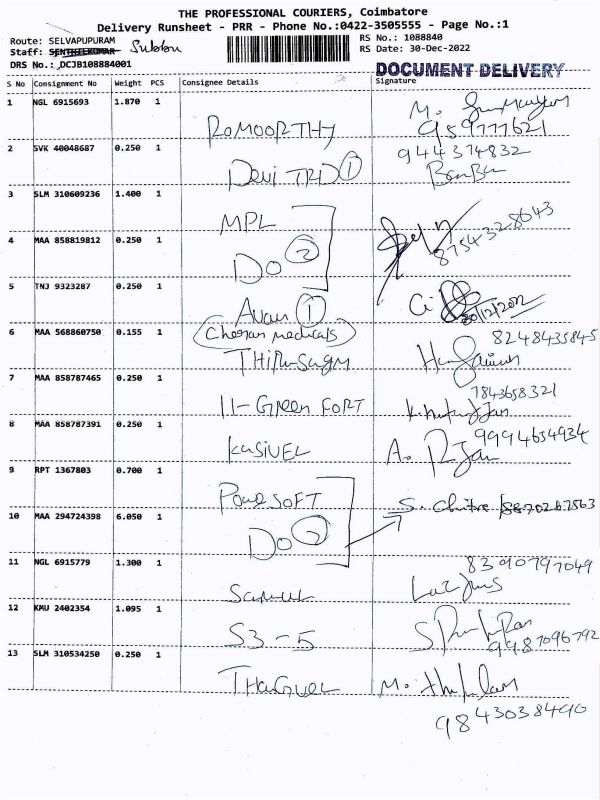 THE PROFESSIONAL COURIERS, Coimbatore
Delivery Runsheet - PRR - Phone No.:0422-3505555 - Page No.:1
Route: SELVAPUPURAM
RS No.: 1088840
Staff: SENTHILKUMAR Subbu
RS Date: 30-Dec-2022
DRS No.: DCJB108884001
DOCUMENT DELIVERY
S No Consignment No Weight PCS Consignee Details Signature
1 NGL 6915693 1.870 1
RaMOORTHY 959777621
2 SVK 40048687 0.250 1 944374832
Devi TRD 1
3 SLM 310609236 1.400 1
MPL 8754328643
4 MAA 858819812 0.250 1
DO 2
5 TNJ 9323287 0.250 1
1 30/12/2012
6 MAA 568860750 0.155 1 Cheran medicals 8248435845
7 MAA 858787465 0.250 1 7843658321
11-Green FORT
8 MAA 858787391 0.250 1 9994654934
KaSiVEL A. Rajan
9 RPT 1367803 0.700 1
PoweSOFT S. Chitra
10 MAA 294724398 6.050 1
DO 2
11 NGL 6915779 1.300 1 8390797049
12 KMU 2402354 1.095 1
S3-5 9487096792
13 SLM 310534250 0.250 1
9843038490